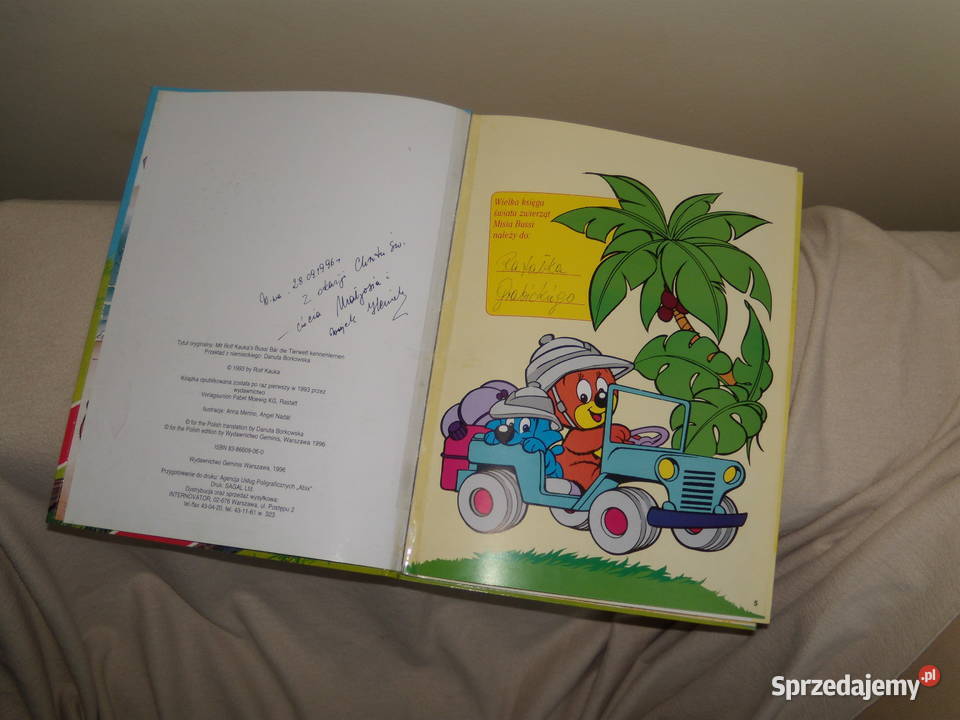 W-wa. 28.09.1996r
z okazji Chrztu Św.
– ciocia Małgosia i
wujek
Tytuł oryginalny: Mit Rolf Kauka's Bussi Bär die Tierwelt kennenlernen
Przekład z niemieckiego: Danuta Borkowska
© 1993 by Rolf Kauka
Książka opublikowana została po raz pierwszy w 1993 przez
wydawnictwo
Verlagsunion Pabel Moewig KG, Rastatt
Ilustracje: Anna Merino, Angel Nadal
© for the Polish translation by Danuta Borkowska
© for the Polish edition by Wydawnictwo Geminis, Warszawa 1996
ISBN 83-86609-06-0
Wydawnictwo Geminis Warszawa, 1996
Przygotowanie do druku: Agencja Usług Poligraficznych „Abix"
Druk: SAGAL Ltd.
Dystrybucja oraz sprzedaż wysyłkowa:
INTERNOVATOR, 02-676 Warszawa, ul. Postępu 2
tel./fax 43-04-20, tel. 43-11-61 w. 323
Wielka księga
świata zwierząt
Misia Bussi
należy do:
Rafałka
5
Sprzedajemy.pl